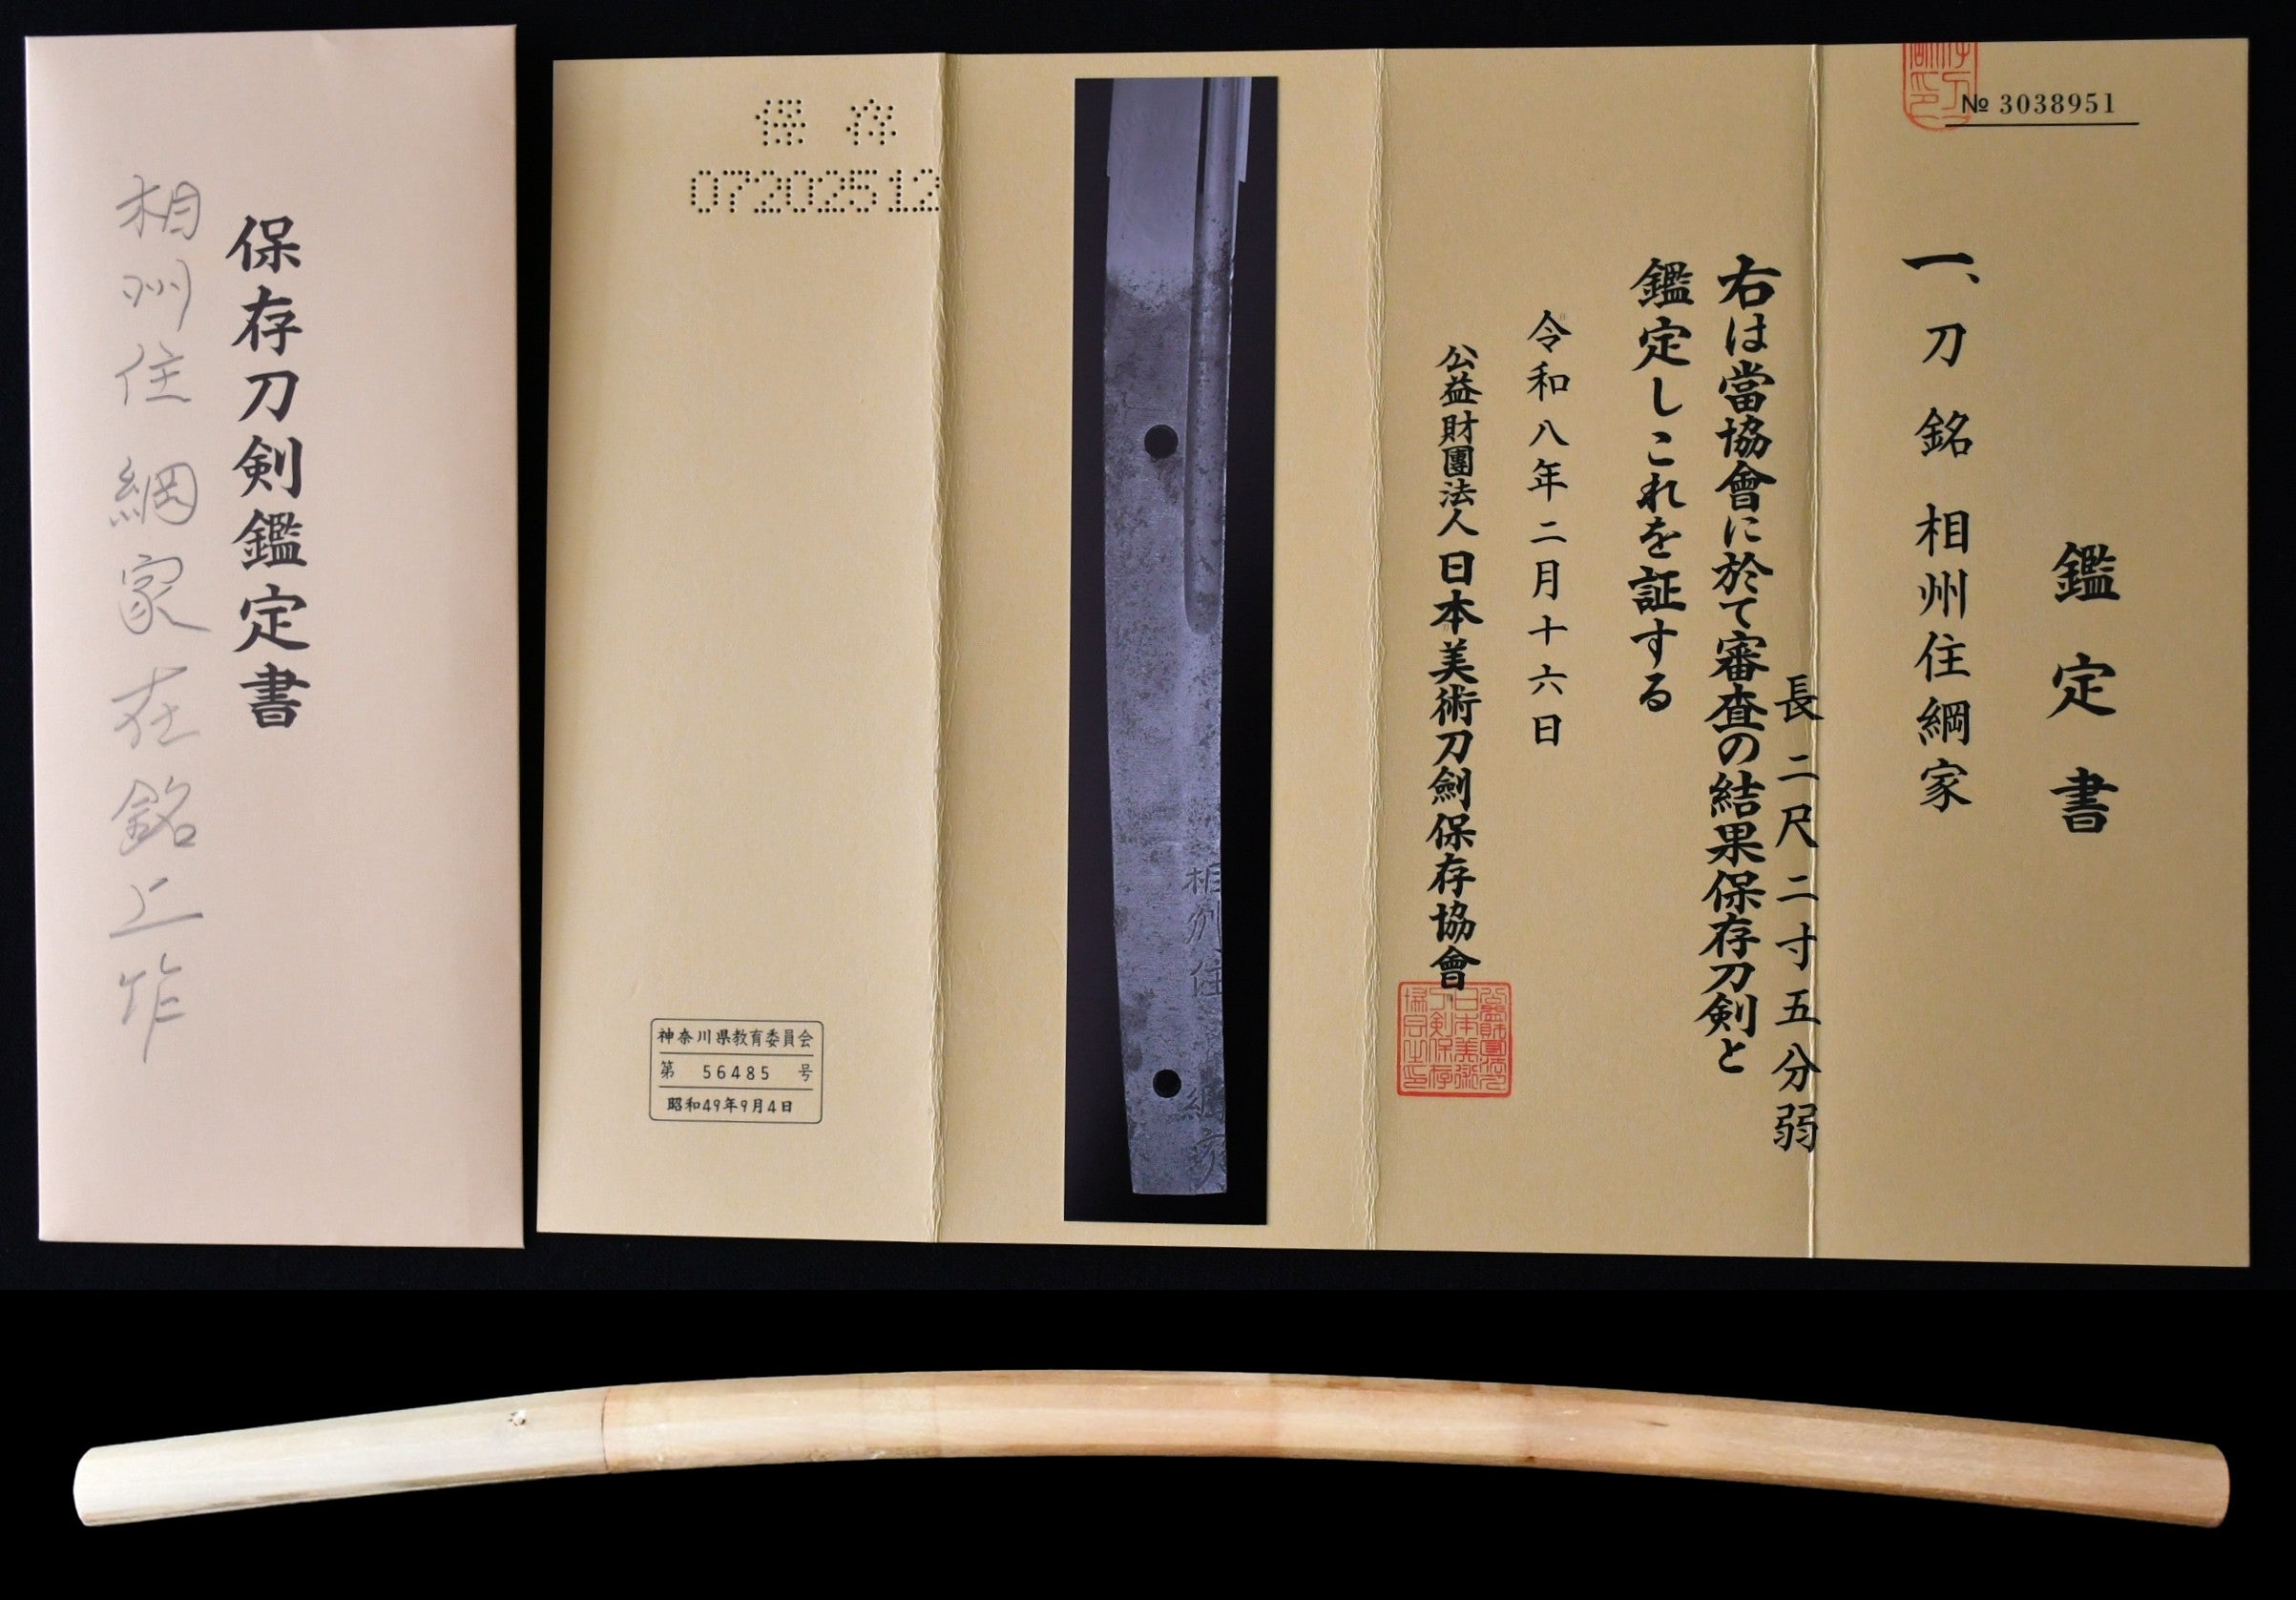 保存刀剣鑑定書
相州住綱家在銘上作
№ 3038951
鑑定書
一、刀 銘 相州住綱家
長二尺二寸五分弱
右は當協會に於て審査の結果保存刀剣と
鑑定しこれを証する
令和八年二月十六日
公益財團法人日本美術刀劍保存協會
相州住
綱家
保存
07202512
神奈川県教育委員会
第 56485 号
昭和49年9月4日